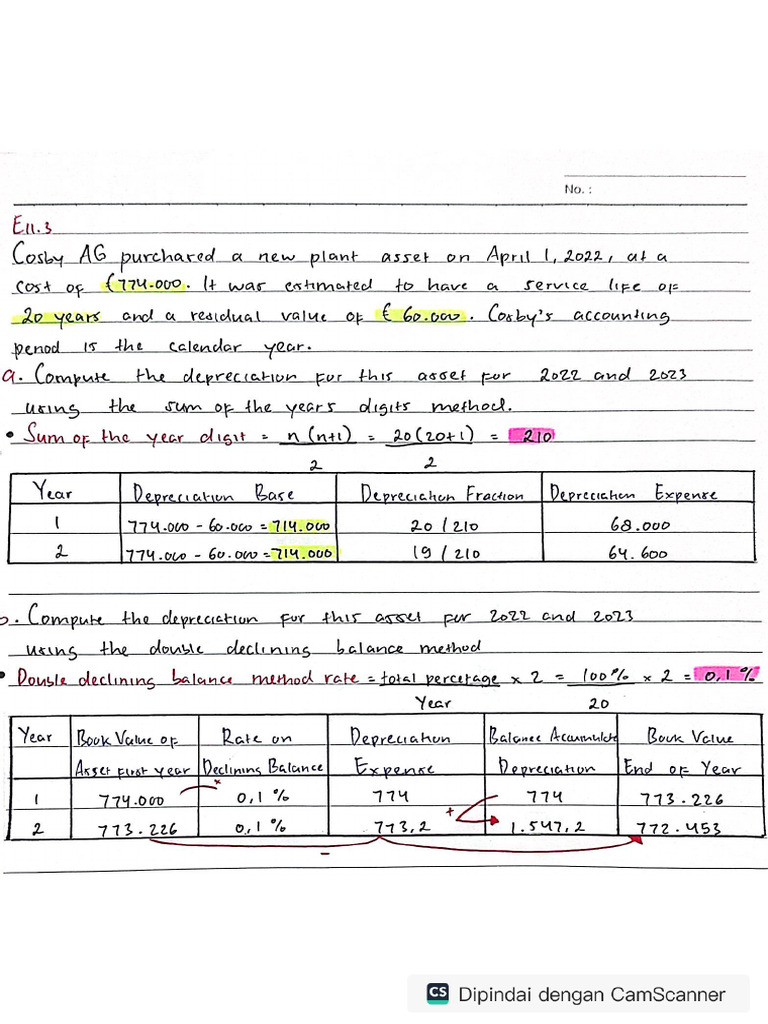 No. :
E11.3
Cosby AG purchared a new plant asset on April 1, 2022, at a
cost of £774.000. It was estimated to have a service life of
20 years and a residual value of € 60.000. Cosby's accounting
period is the calendar year.
a. Compute the depreciation for this asset for 2022 and 2023
using the sum of the years digits method.
• Sum of the year digit = n(n+1) = 20(20+1) = 210
2 2
Year Depreciation Base Depreciation Fraction Depreciation Expense
1 774.000 - 60.000 = 714.000 20 / 210 68.000
2 774.000 - 60.000 = 714.000 19 / 210 64.600
b. Compute the depreciation for this asset for 2022 and 2023
using the double declining balance method
• Double declining balance method rate = total percetage × 2 = 100% × 2 = 0,1 %
Year 20
Year Book Value of Rate on Depreciation Balance Accumulate Book Value
Asset first year Declining Balance Expense Depreciation End of Year
1 774.000 × 0,1 % 774 774 773.226
2 773.226 0,1 % 773,2 + 1.547,2 772.453
-
CS Dipindai dengan CamScanner